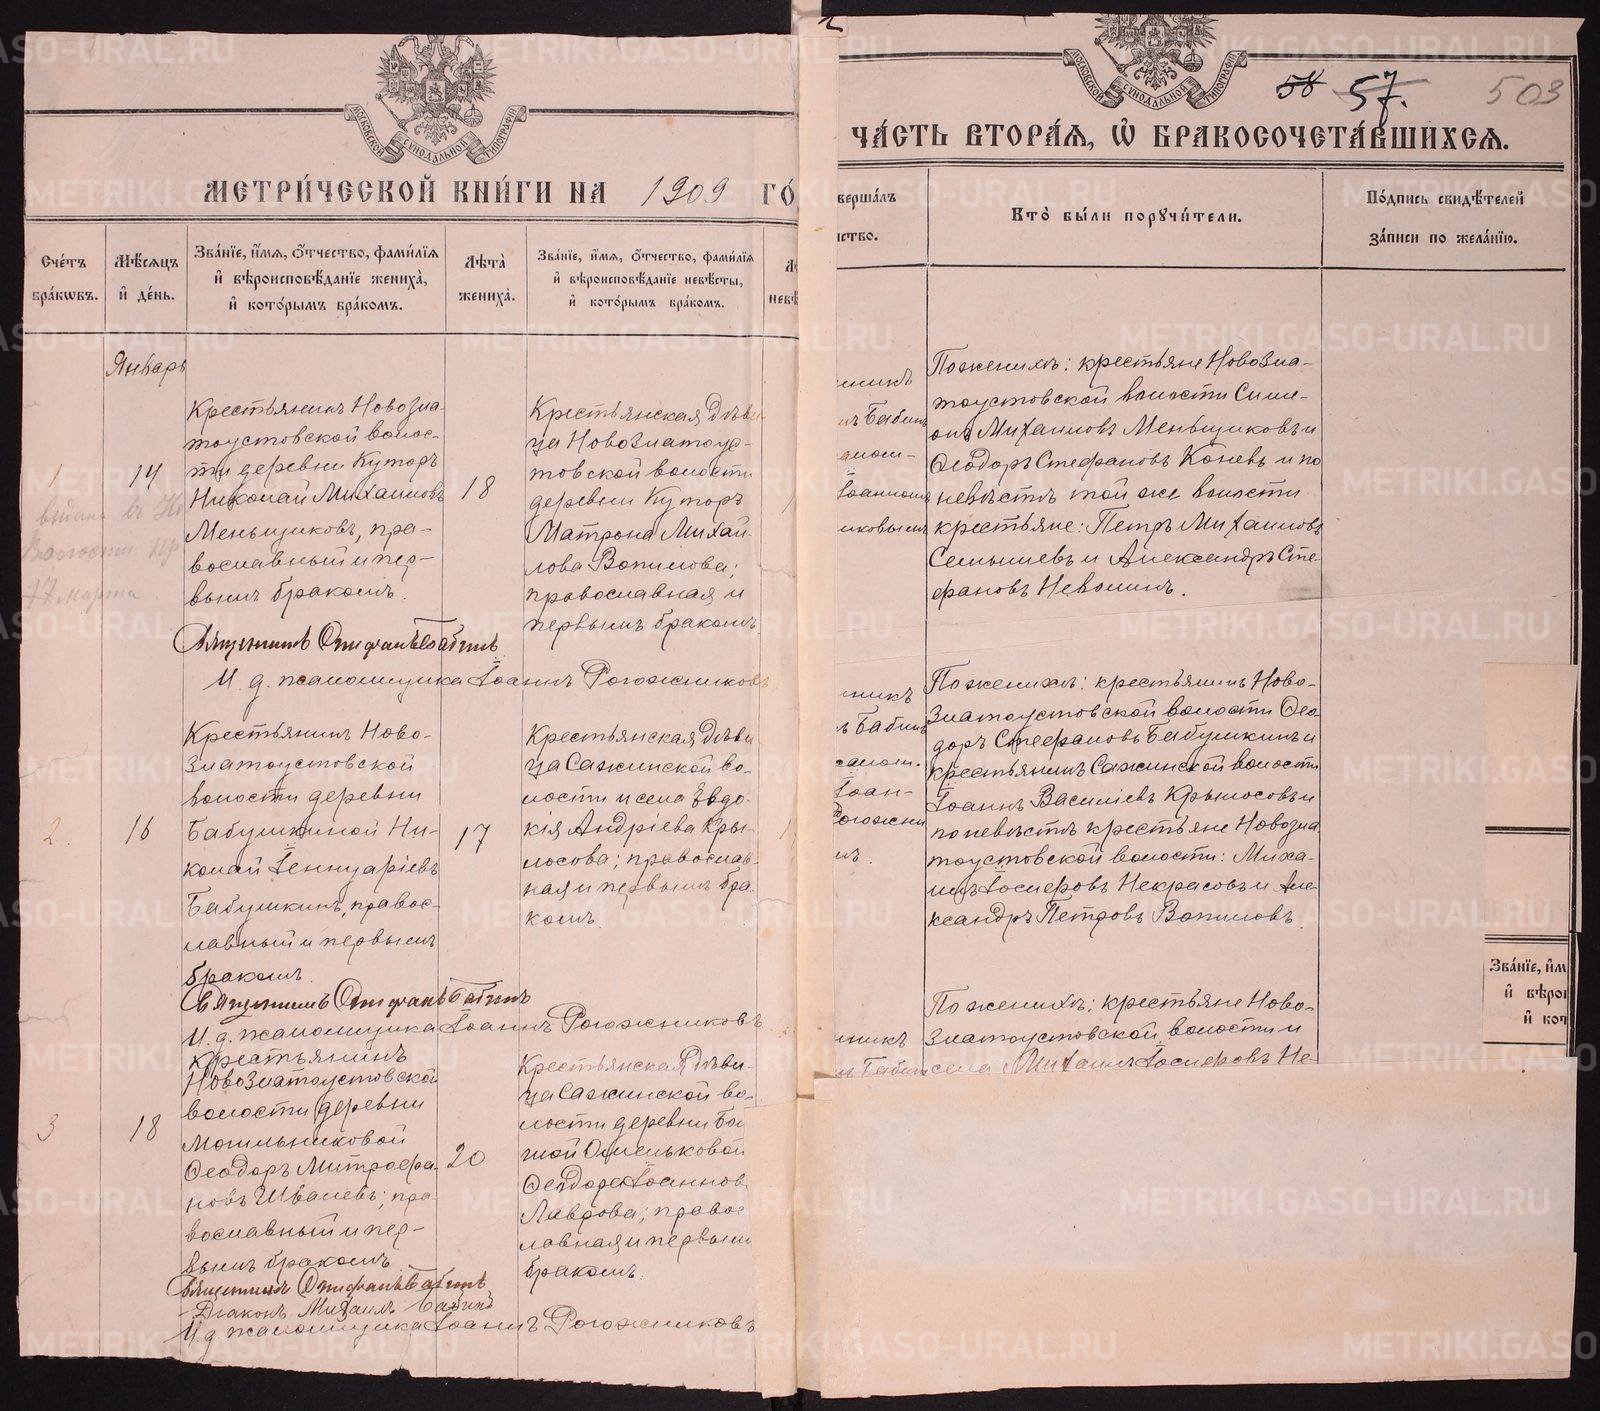 МЕТРИЧЕСКОЙ КНИГИ НА 1909 ГО
Счетъ браковъ.
Мѣсяцъ и день.
Званіе, имя, отчество, фамилія и вѣроисповѣданіе жениха, и которымъ бракомъ.
Лѣта жениха.
Званіе, имя, отчество, фамилія и вѣроисповѣданіе невѣсты, и которымъ бракомъ.
Январь
1
14
Крестьянинъ Новозла-
тоустовской волос-
ти деревни Куторъ
Николай Михаиловъ
Меньщиковъ, пра-
вославный и пер-
вымъ бракомъ.
18
Крестьянская Дѣви
ца Новозлатоус-
товской волости
деревни Куторъ
Матрона Михай-
лова Вопилова;
православная и
первымъ бракомъ
17 марта
Священникъ Бабинъ
И. д. псаломщика Іоаннъ Рогожниковъ
2.
16
Крестьянинъ Ново-
златоустовской
волости деревни
Бабушкиной Ни-
колай Геннуаріевъ
Бабушкинъ, правос-
лавный и первымъ
бракомъ.
17
Крестьянская Дѣви
ца Сажинской во-
лости и села Евдо-
кія Андріева Кры-
лосова; православ-
ная и первымъ бра-
комъ.
Священникъ Бабинъ
И. д. псаломщика Іоаннъ Рогожниковъ
3
18
Крестьянинъ
Новозлатоустовской
волости деревни
Могильниковой
Ѳеодоръ Митрофа-
новъ Швалевъ; пра-
вославный и пер-
вымъ бракомъ
20
Крестьянская Дѣви-
ца Сажинской во-
лости деревни
Омельковой
Ѳеодора Іоаннов
Лаврова; правос
лавная и первым
бракомъ.
Священникъ Бабинъ
Діаконъ Михаилъ
И. д. псаломщика Іоаннъ Рогожниковъ
58 57. 503
ЧАСТЬ ВТОРАЯ, Ѡ БРАКОСОЧЕТАВШИХСЯ.
вершалъ
ство.
Кто были поручители.
Подпись свидѣтелей записи по желанію.
По женихѣ: крестьяне Новозла-
тоустовской волости Симе-
онъ Михаиловъ Меньщиковъ и
Ѳеодоръ Стефановъ Коневъ и по
невѣстѣ той же волости
крестьяне: Петръ Михаиловъ
и Александръ Сте
фановъ Неволинъ.
По женихѣ: крестьянинъ Ново-
златоустовской волости Ѳео-
доръ Стефановъ Бабушкинъ и
крестьянинъ Сажинской волости
Іоаннъ Василіевъ Крылосовъ и
по невѣстѣ крестьяне Новозла
тоустовской волости: Миха-
илъ Іосифовъ Некрасовъ и Але-
ксандръ Петровъ Вопиловъ.
По женихѣ: крестьяне Ново-
златоустовской волости и
села: Михаилъ Іосифовъ Не-
Званіе, им
и вѣрои
и кот
МОСКОВСКОЙ СѴНОДАЛЬНОЙ ТИПОГРАФІИ
МОСКОВСКОЙ СѴНОДАЛЬНОЙ ТИПОГРАФІИ
METRIKI.GASO-URAL.RU